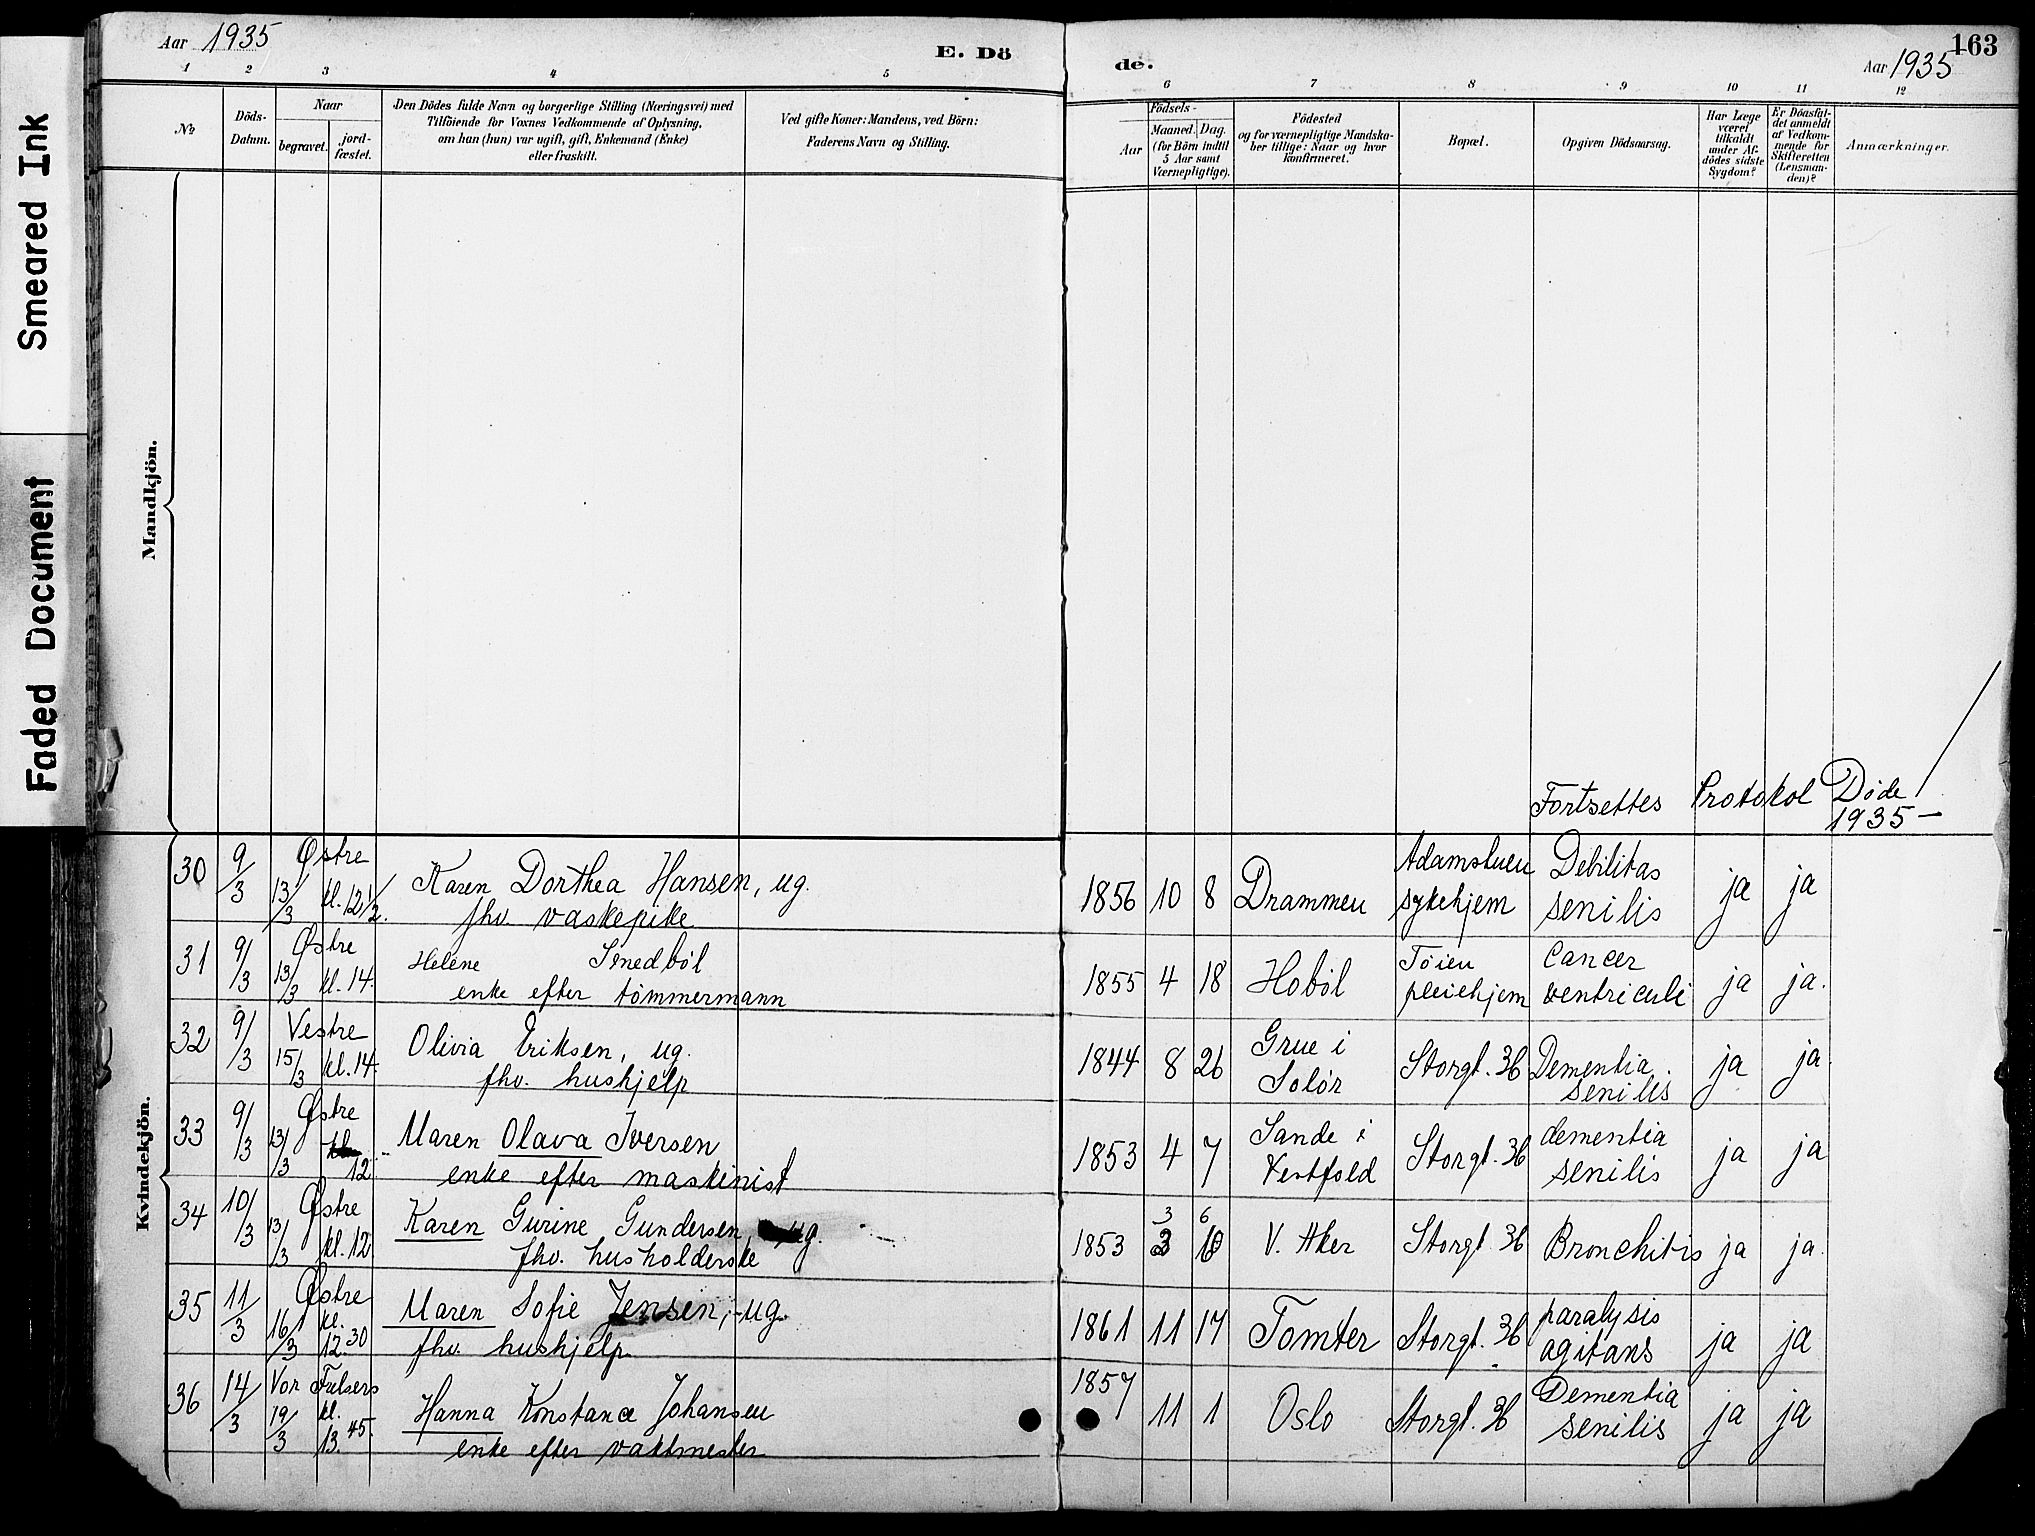 Smeared Ink
Faded Document
Aar 1935
E. Dö
de.
Aar 1935
163
1 2 3 4 5
6 7 8 9 10 11 12
No
Döds-
Datum.
Naar
begravet.
jord-
fæstet.
Den Dödes fulde Navn og borgerlige Stilling (Næringsvei) med
Tilföiende for Voxnes Vedkommende af Oplysning,
om han (hun) var ugift, gift, Enkemand (Enke)
eller fraskilt.
Ved gifte Koner: Mandens, ved Börn:
Faderens Navn og Stilling.
Födsels-
Aar
Maaned. Dag.
(for Börn indtil
5 Aar samt
Værnepligtige).
Födested
og for værnepligtige Mandska-
ber tillige: Naar og hvor
konfirmeret.
Bopæl.
Opgiven Dödsaarsag.
Har Læge
været
tilkaldt
under Af-
dödes sidste
Sygdom?
Er Döasfal-
det anmeldt
af Vedkom-
mende for
Skifteretten
(Lensman-
den)?
Anmærkninger.
Mandkjön.
Fortsettes Protokol Døde
1935 —
Kvindekjön.
30 9/3 Østre 13/3 kl. 12 1/2. Karen Dorthea Hansen, ug.
fhv. vaskepike
1856 10 8 Drammen Adamstuen
sykehjem
Debilitas
senilis
ja ja
31 9/3 Østre 13/3 kl. 14. Helene Smedbøl
enke efter tømmermann
1855 4 18 Hobøl Tøien
pleiehjem
Cancer
ventriculi
ja ja.
32 9/3 Vestre 15/3 kl. 14. Olivia Eriksen, ug.
fhv. hushjelp
1844 8 26 Grue i
Solør
Storgt. 36 Dementia
senilis
ja ja.
33 9/3 Østre 13/3 12 Maren Olava Iversen
enke efter maskinist
1853 4 7 Sande i
Vestfold
Storgt. 36 dementia
senilis
ja ja
34 10/3 Østre 13/3 kl. 12 Karen Gurine Gundersen, ug.
fhv. husholderske
1853 3 6 V. Aker Storgt. 36 Bronchitis ja ja.
35 11/3 Østre 16/3 kl. 12.30 Maren Sofie Jensen, ug.
fhv. hushjelp
1861 11 17 Tomter Storgt. 36 paralysis
agitans
ja ja
36 14/3 Vor Frelsers 19/3 kl. 13.45. Hanna Konstance Johansen
enke efter vaktmester
1857 11 1 Oslo Storgt. 36 Dementia
senilis
ja ja